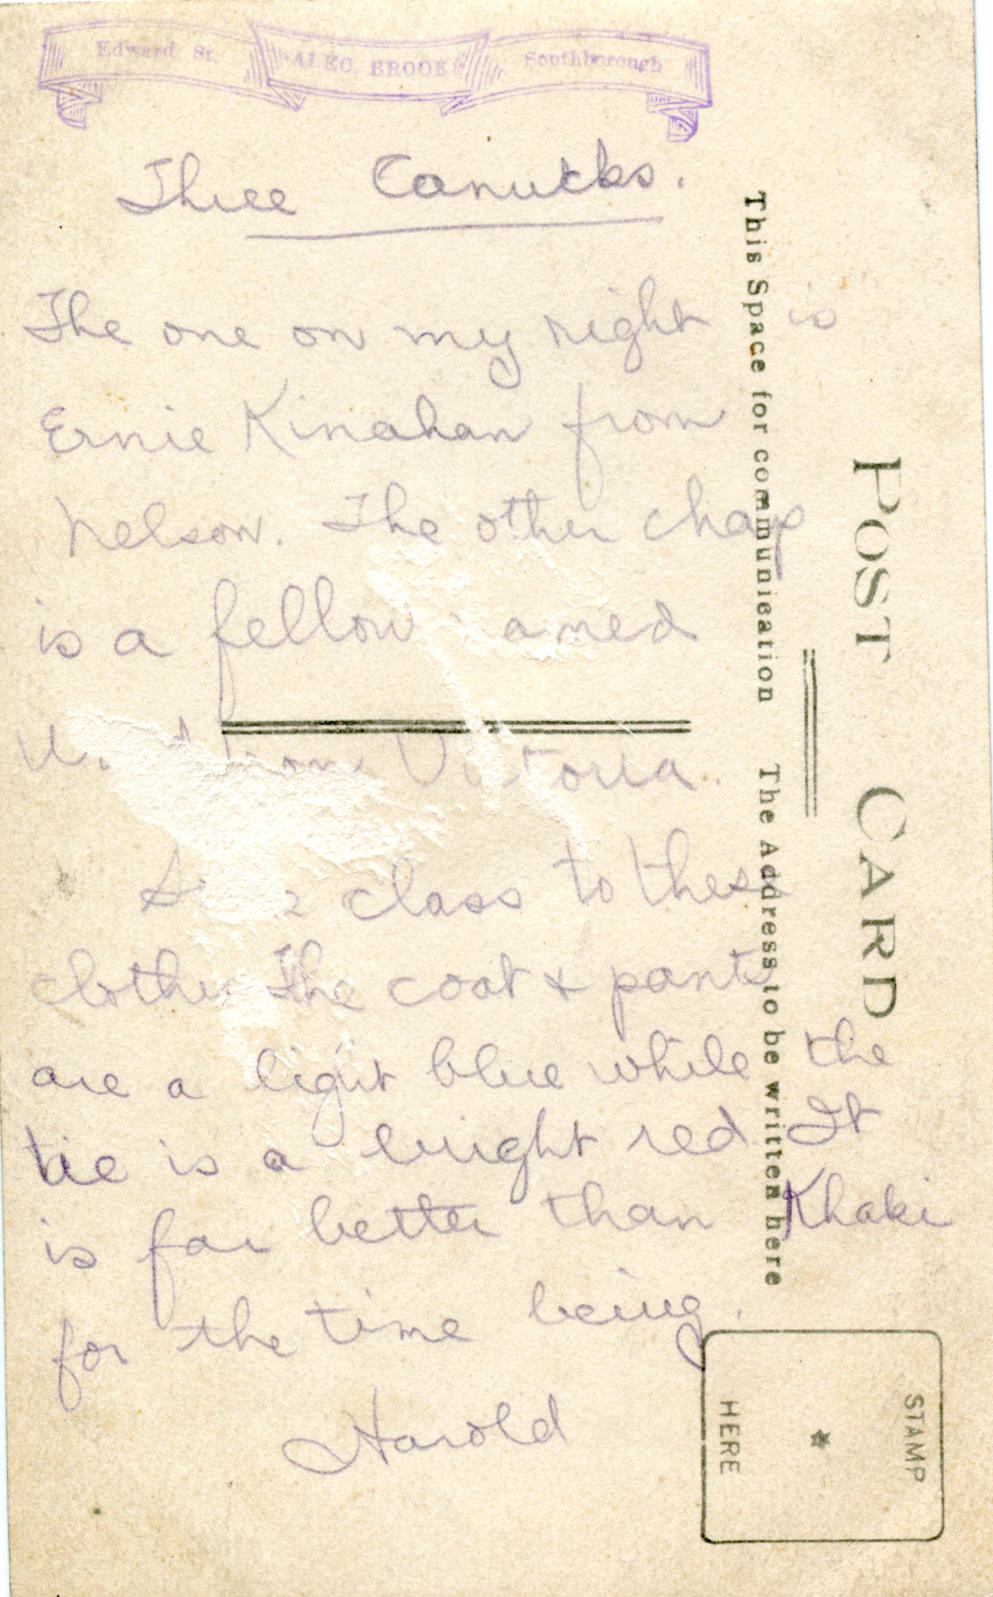 Edward St. ALEC. BROOK Southborough
Three Canucks.
The one on my right is
Ernie Kinahan from
Nelson. The other chap
is a fellow named
from Victoria.
class to these
clothes The coat & pants
are a light blue while the
tie is a bright red It
is far better than Khaki
for the time being.
Harold
This Space for communication The Address to be written here
POST CARD
STAMP
HERE